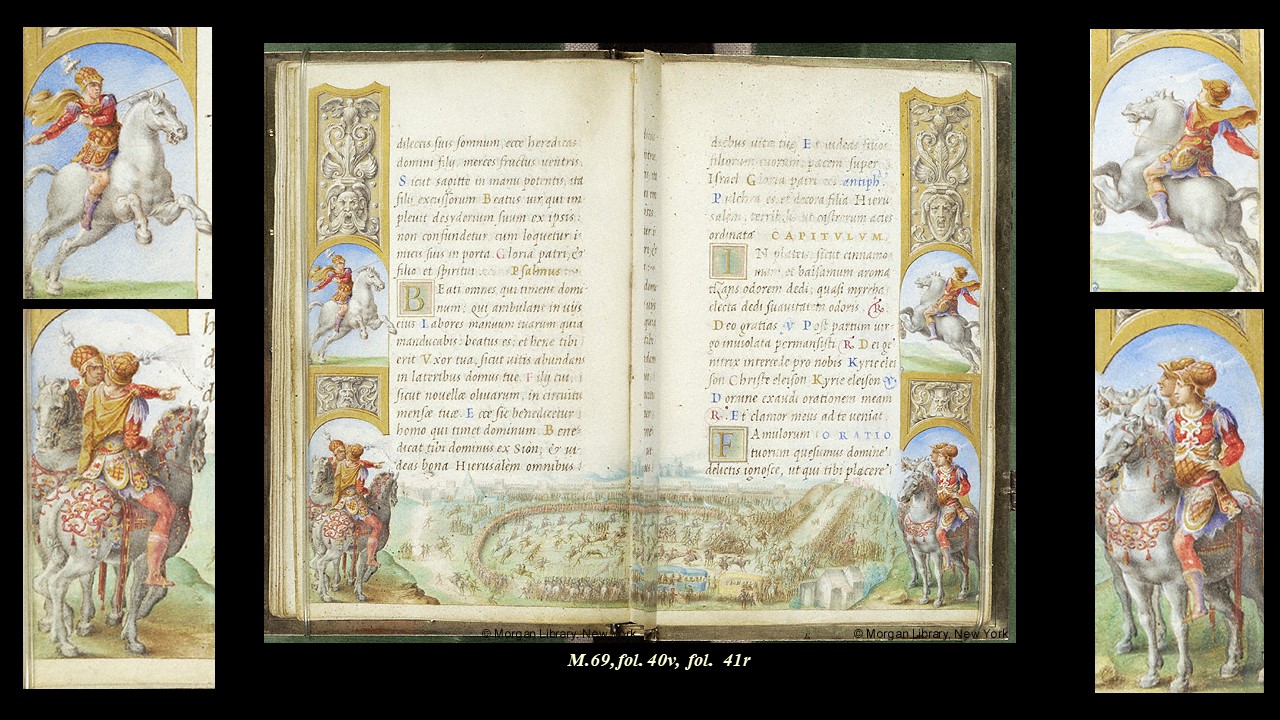 dilectis suis somnum, ecce hereditas
domini filij, merces fructus ventris.
Sicut sagitte in manu potentis, ita
filij excussorum Beatus uir qui im
pleuit desyderium suum ex ipsis:
non confundetur cum loquetur i
micis suis in porta. Gloria patri, &
filio et spiritui Psalmus
Eati omnes qui timent domi
num; qui ambulant in uijs
eius Labores manuum tuarum quia
manducabis beatus es, et bene tibi
erit Vxor tua, sicut uitis abundans
in lateribus domus tue. Filij tui, i
sicut novellæ olivarum, in circuitu
mensæ tuæ. Ecce sic benedicetur
homo qui timet dominum Bene
dicat tibi dominus ex Sion, & ut
deas bona Hierusalem omnibus
diebus uitæ tuæ Et uideas filios
filiorum tuorum, pacem super
Israel Gloria patri antiph.
Pulchra es et decora filia Hieru
salem, terribilis ut castrorum acies
ordinata CAPITVLVM.
IN plateis, sicut cinnamo
mum, et balsamum aroma
tizans odorem dedi, quasi myrrha
electa dedi suauitatem odoris. R.
Deo gratias V Post partum uir
go inuiolata permansisti R. Dei ge
nitrix intercede pro nobis Kyrie elei
son Christe eleison Kyrie eleison V
Domine exaudi orationem meam
R. Et clamor meus ad te veniat.
FAmulorum ORATIO
tuorum quesumus domine
delictis ignosce, ut qui tibi placere
© Morgan Library, New York
© Morgan Library, New York
M.69, fol. 40v, fol. 41r